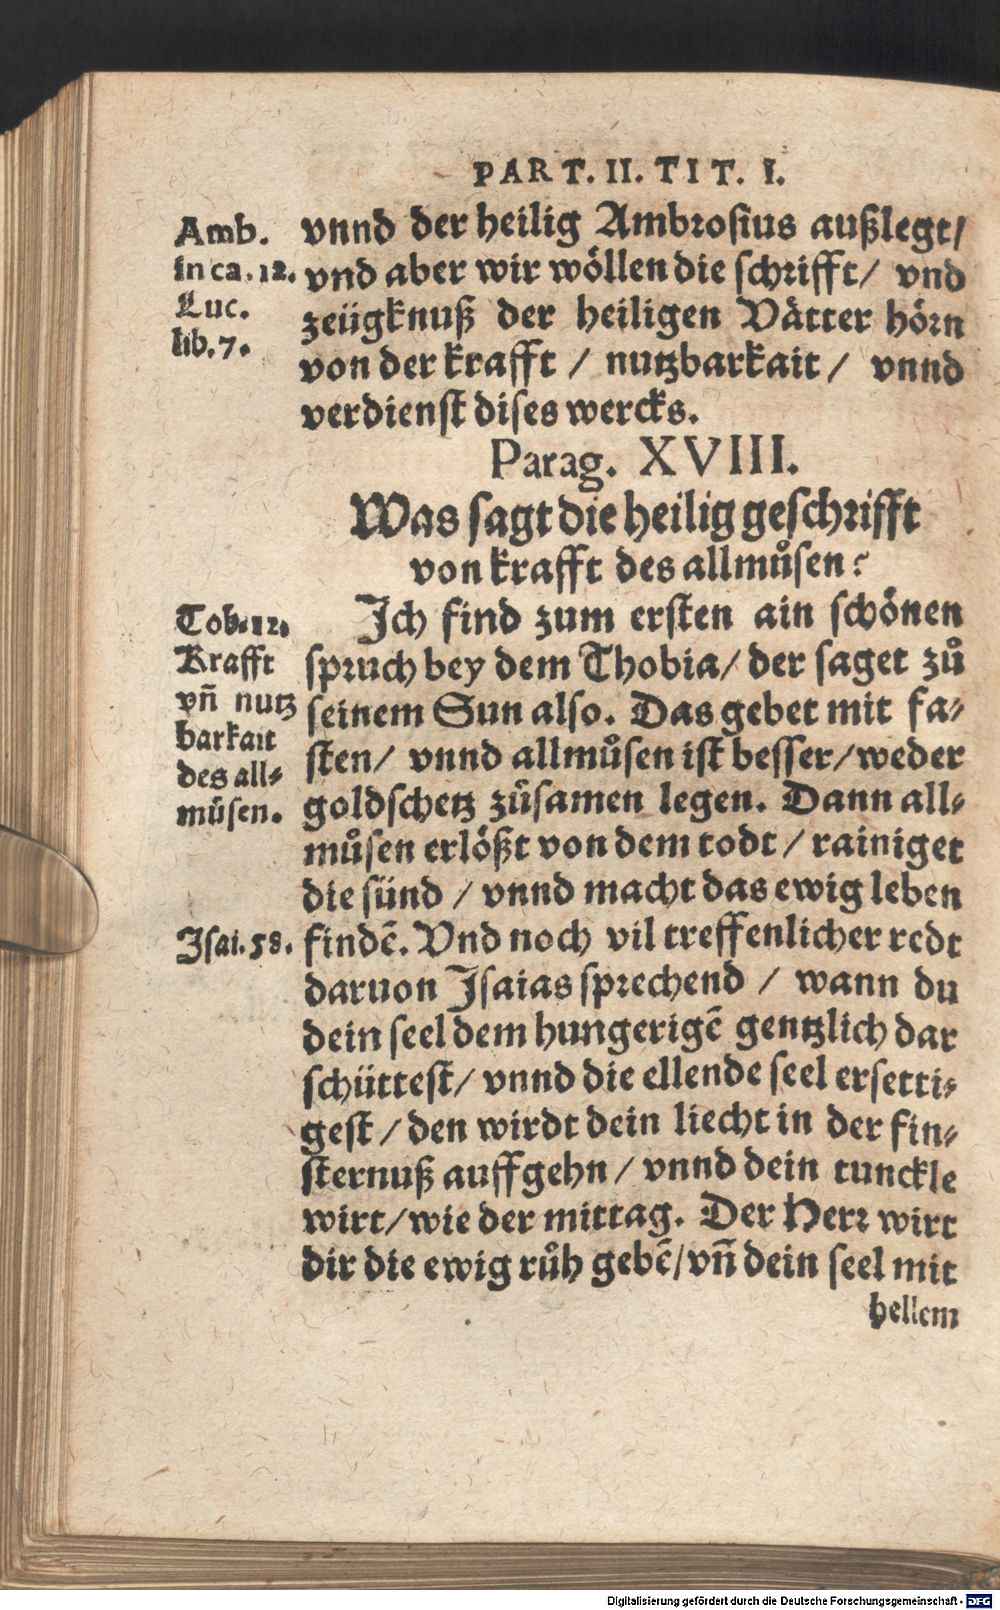 PART. II. TIT. I.
Amb.
in ca. 12.
Luc.
lib. 7.
vnnd der heilig Ambrosius außlegt/
vnd aber wir wöllen die schrifft/ vnd
zeügknuß der heiligen Vätter hörn
von der krafft / nutzbarkait / vnnd
verdienst dises wercks.
Parag. XVIII.
Was sagt die heilig geschrifft
von krafft des allmůsen?
Tob. 12.
Krafft
vñ nutz
barkait
des all-
můsen.
Ich find zum ersten ain schönen
spruch bey dem Thobia/ der saget zů
seinem Sun also. Das gebet mit fa-
sten/ vnnd allmůsen ist besser/ weder
goldschetz zůsamen legen. Dann all-
můsen erlößt von dem todt / rainiget
die sünd / vnnd macht das ewig leben
Isai. 58.
findẽ. Vnd noch vil treffenlicher redt
daruon Isaias sprechend / wann du
dein seel dem hungerigẽ gentzlich dar
schüttest/ vnnd die ellende seel ersetti-
gest / den wirdt dein liecht in der fin-
sternuß auffgehn / vnnd dein tunckle
wirt/ wie der mittag. Der Herr wirt
dir die ewig růh gebẽ/ vñ dein seel mit
hellem
Digitalisierung gefördert durch die Deutsche Forschungsgemeinschaft - DFG